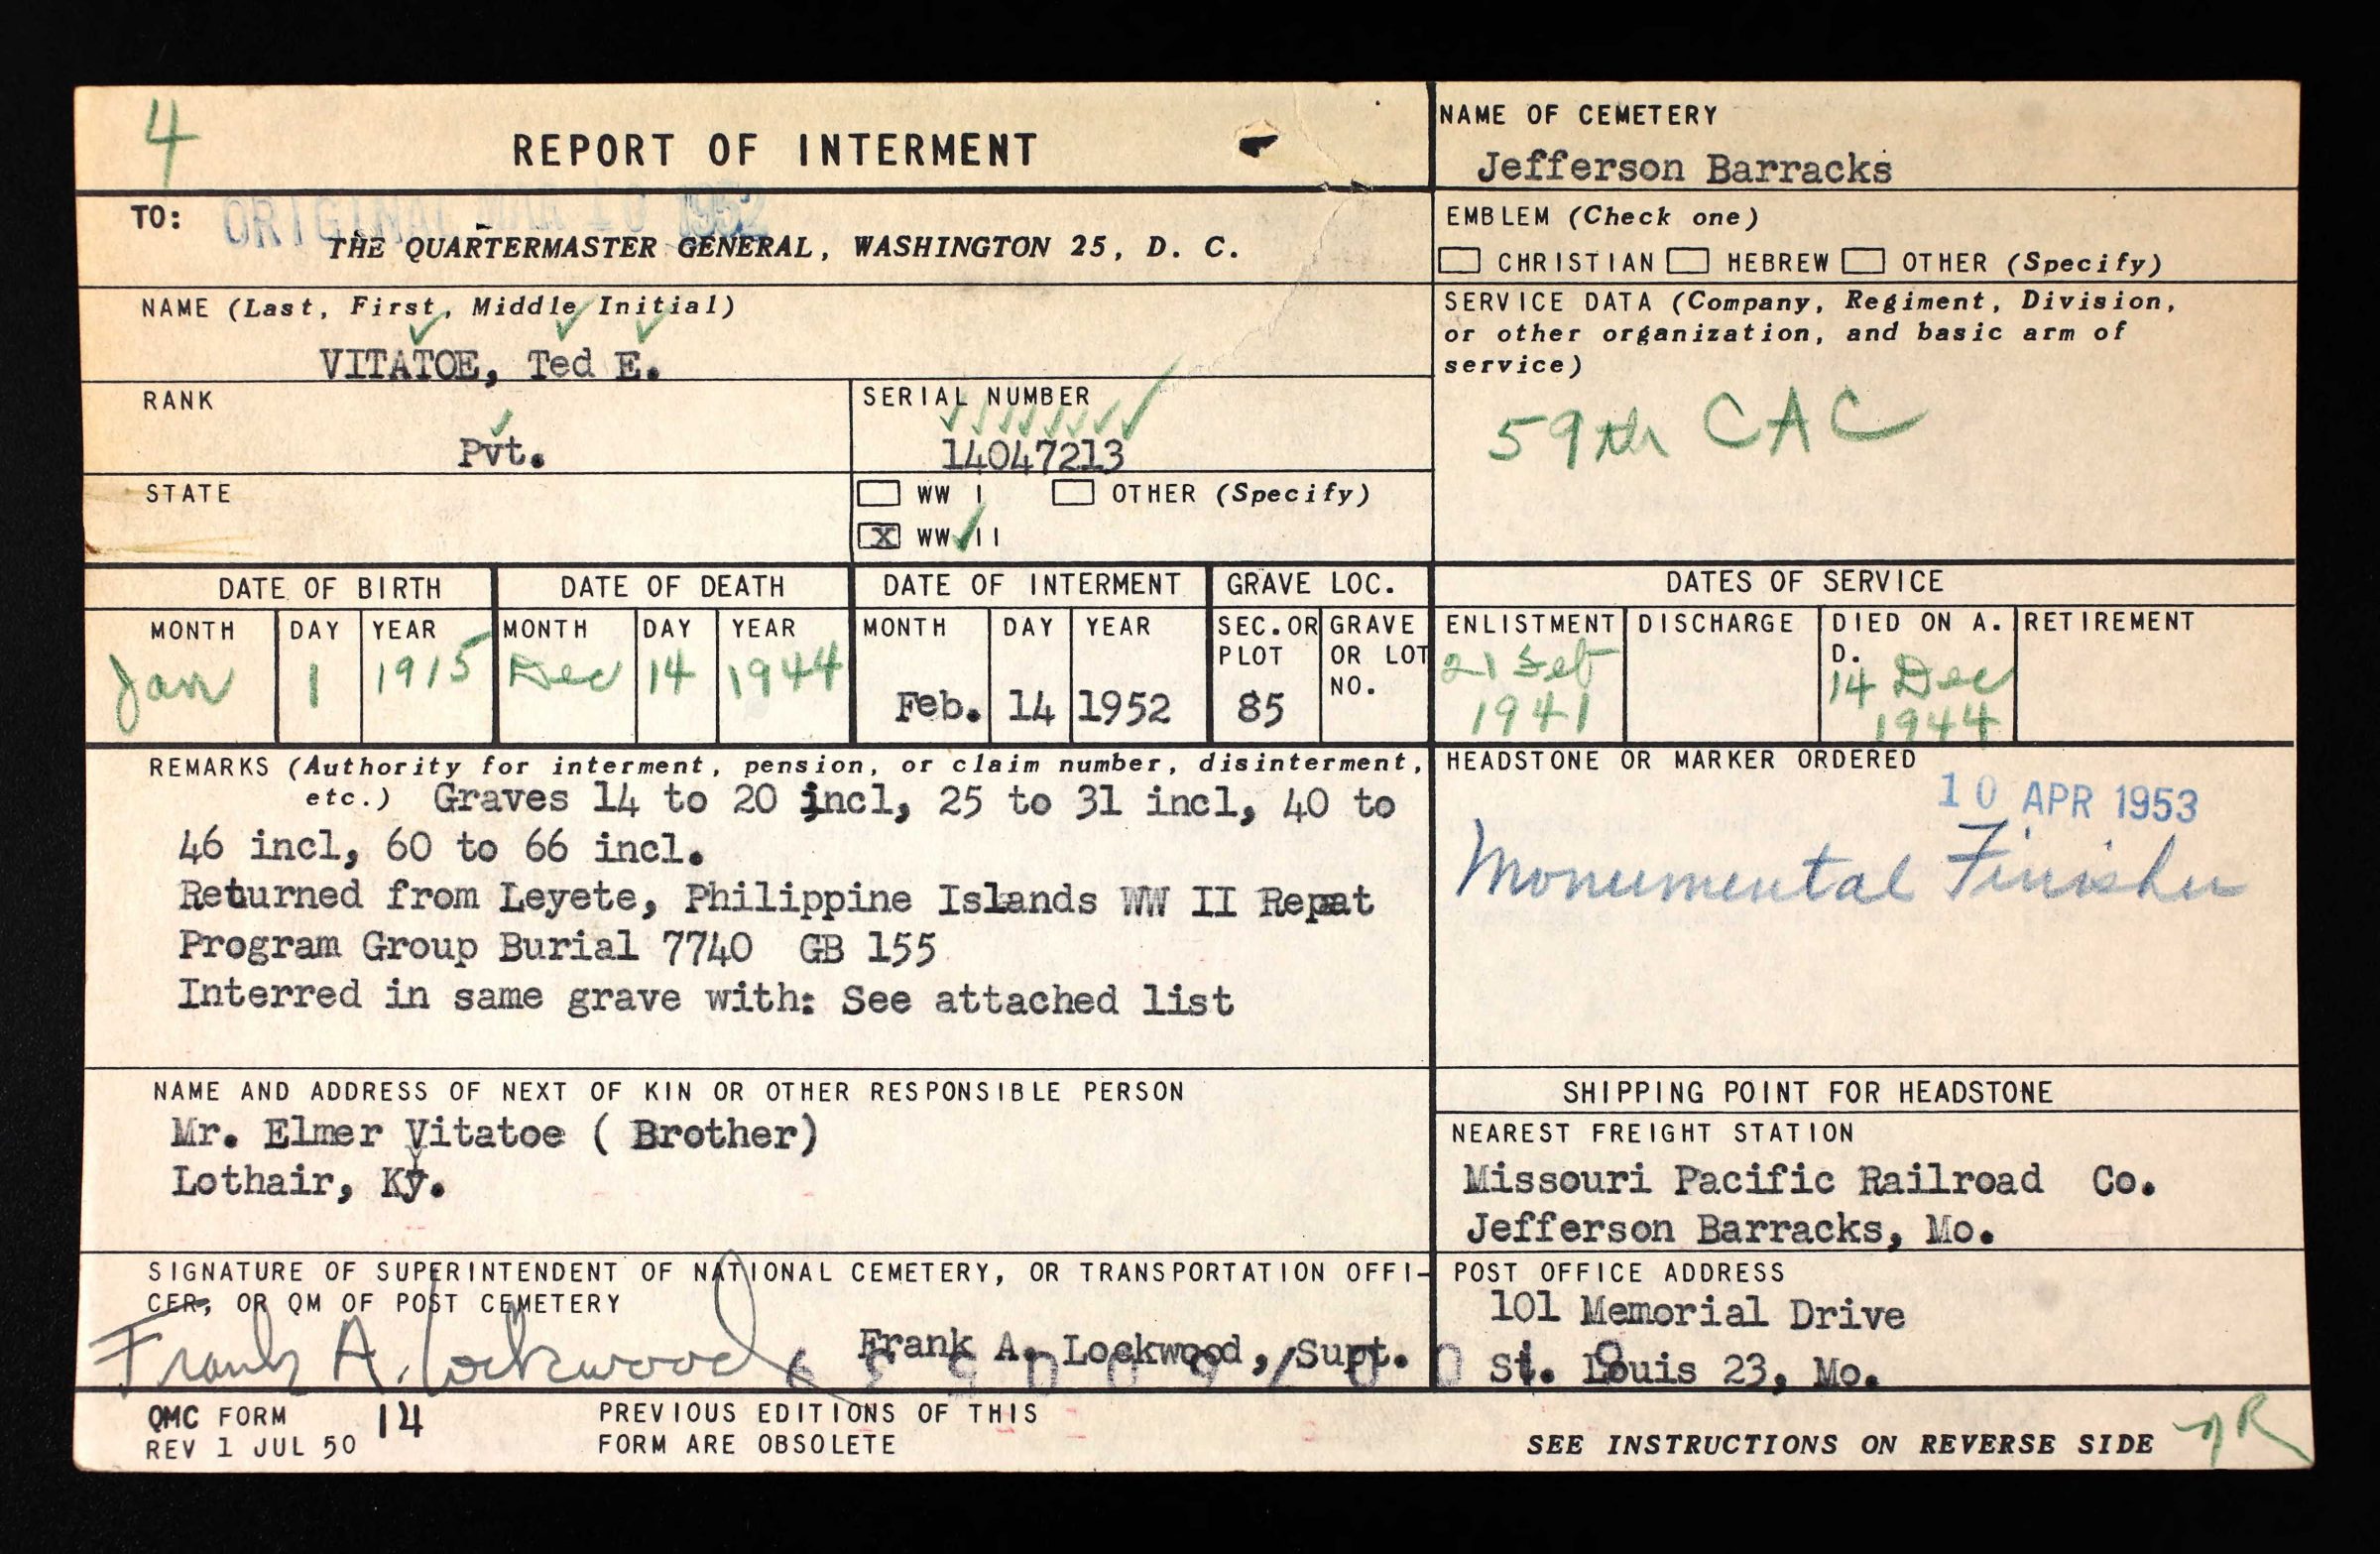 4
REPORT OF INTERMENT
NAME OF CEMETERY
Jefferson Barracks
TO:
ORIGINAL MAR 10 1952
THE QUARTERMASTER GENERAL, WASHINGTON 25, D. C.
EMBLEM (Check one)
CHRISTIAN HEBREW OTHER (Specify)
NAME (Last, First, Middle Initial)
VITATOE, Ted E.
SERVICE DATA (Company, Regiment, Division,
or other organization, and basic arm of
service)
59th CAC
RANK
Pvt.
SERIAL NUMBER
14047213
STATE
WW I OTHER (Specify)
X WW II
DATE OF BIRTH DATE OF DEATH DATE OF INTERMENT GRAVE LOC. DATES OF SERVICE
MONTH DAY YEAR MONTH DAY YEAR MONTH DAY YEAR SEC. OR PLOT GRAVE OR LOT NO. ENLISTMENT DISCHARGE DIED ON A. D. RETIREMENT
Jan 1 1915 Dec 14 1944 Feb. 14 1952 85 1941 14 Dec 1944
REMARKS (Authority for interment, pension, or claim number, disinterment,
etc.) Graves 14 to 20 incl, 25 to 31 incl, 40 to
46 incl, 60 to 66 incl.
Returned from Leyete, Philippine Islands WW II Repat
Program Group Burial 7740 GB 155
Interred in same grave with: See attached list
HEADSTONE OR MARKER ORDERED
10 APR 1953
Monumental Finisher
NAME AND ADDRESS OF NEXT OF KIN OR OTHER RESPONSIBLE PERSON
Mr. Elmer Vitatoe ( Brother)
Lothair, Ky.
SHIPPING POINT FOR HEADSTONE
NEAREST FREIGHT STATION
Missouri Pacific Railroad Co.
Jefferson Barracks, Mo.
SIGNATURE OF SUPERINTENDENT OF NATIONAL CEMETERY, OR TRANSPORTATION OFFI-
CER, OR QM OF POST CEMETERY
Frank A. Lockwood
Frank A. Lockwood, Supt.
POST OFFICE ADDRESS
101 Memorial Drive
St. Louis 23, Mo.
QMC FORM 14
REV 1 JUL 50
PREVIOUS EDITIONS OF THIS
FORM ARE OBSOLETE
SEE INSTRUCTIONS ON REVERSE SIDE